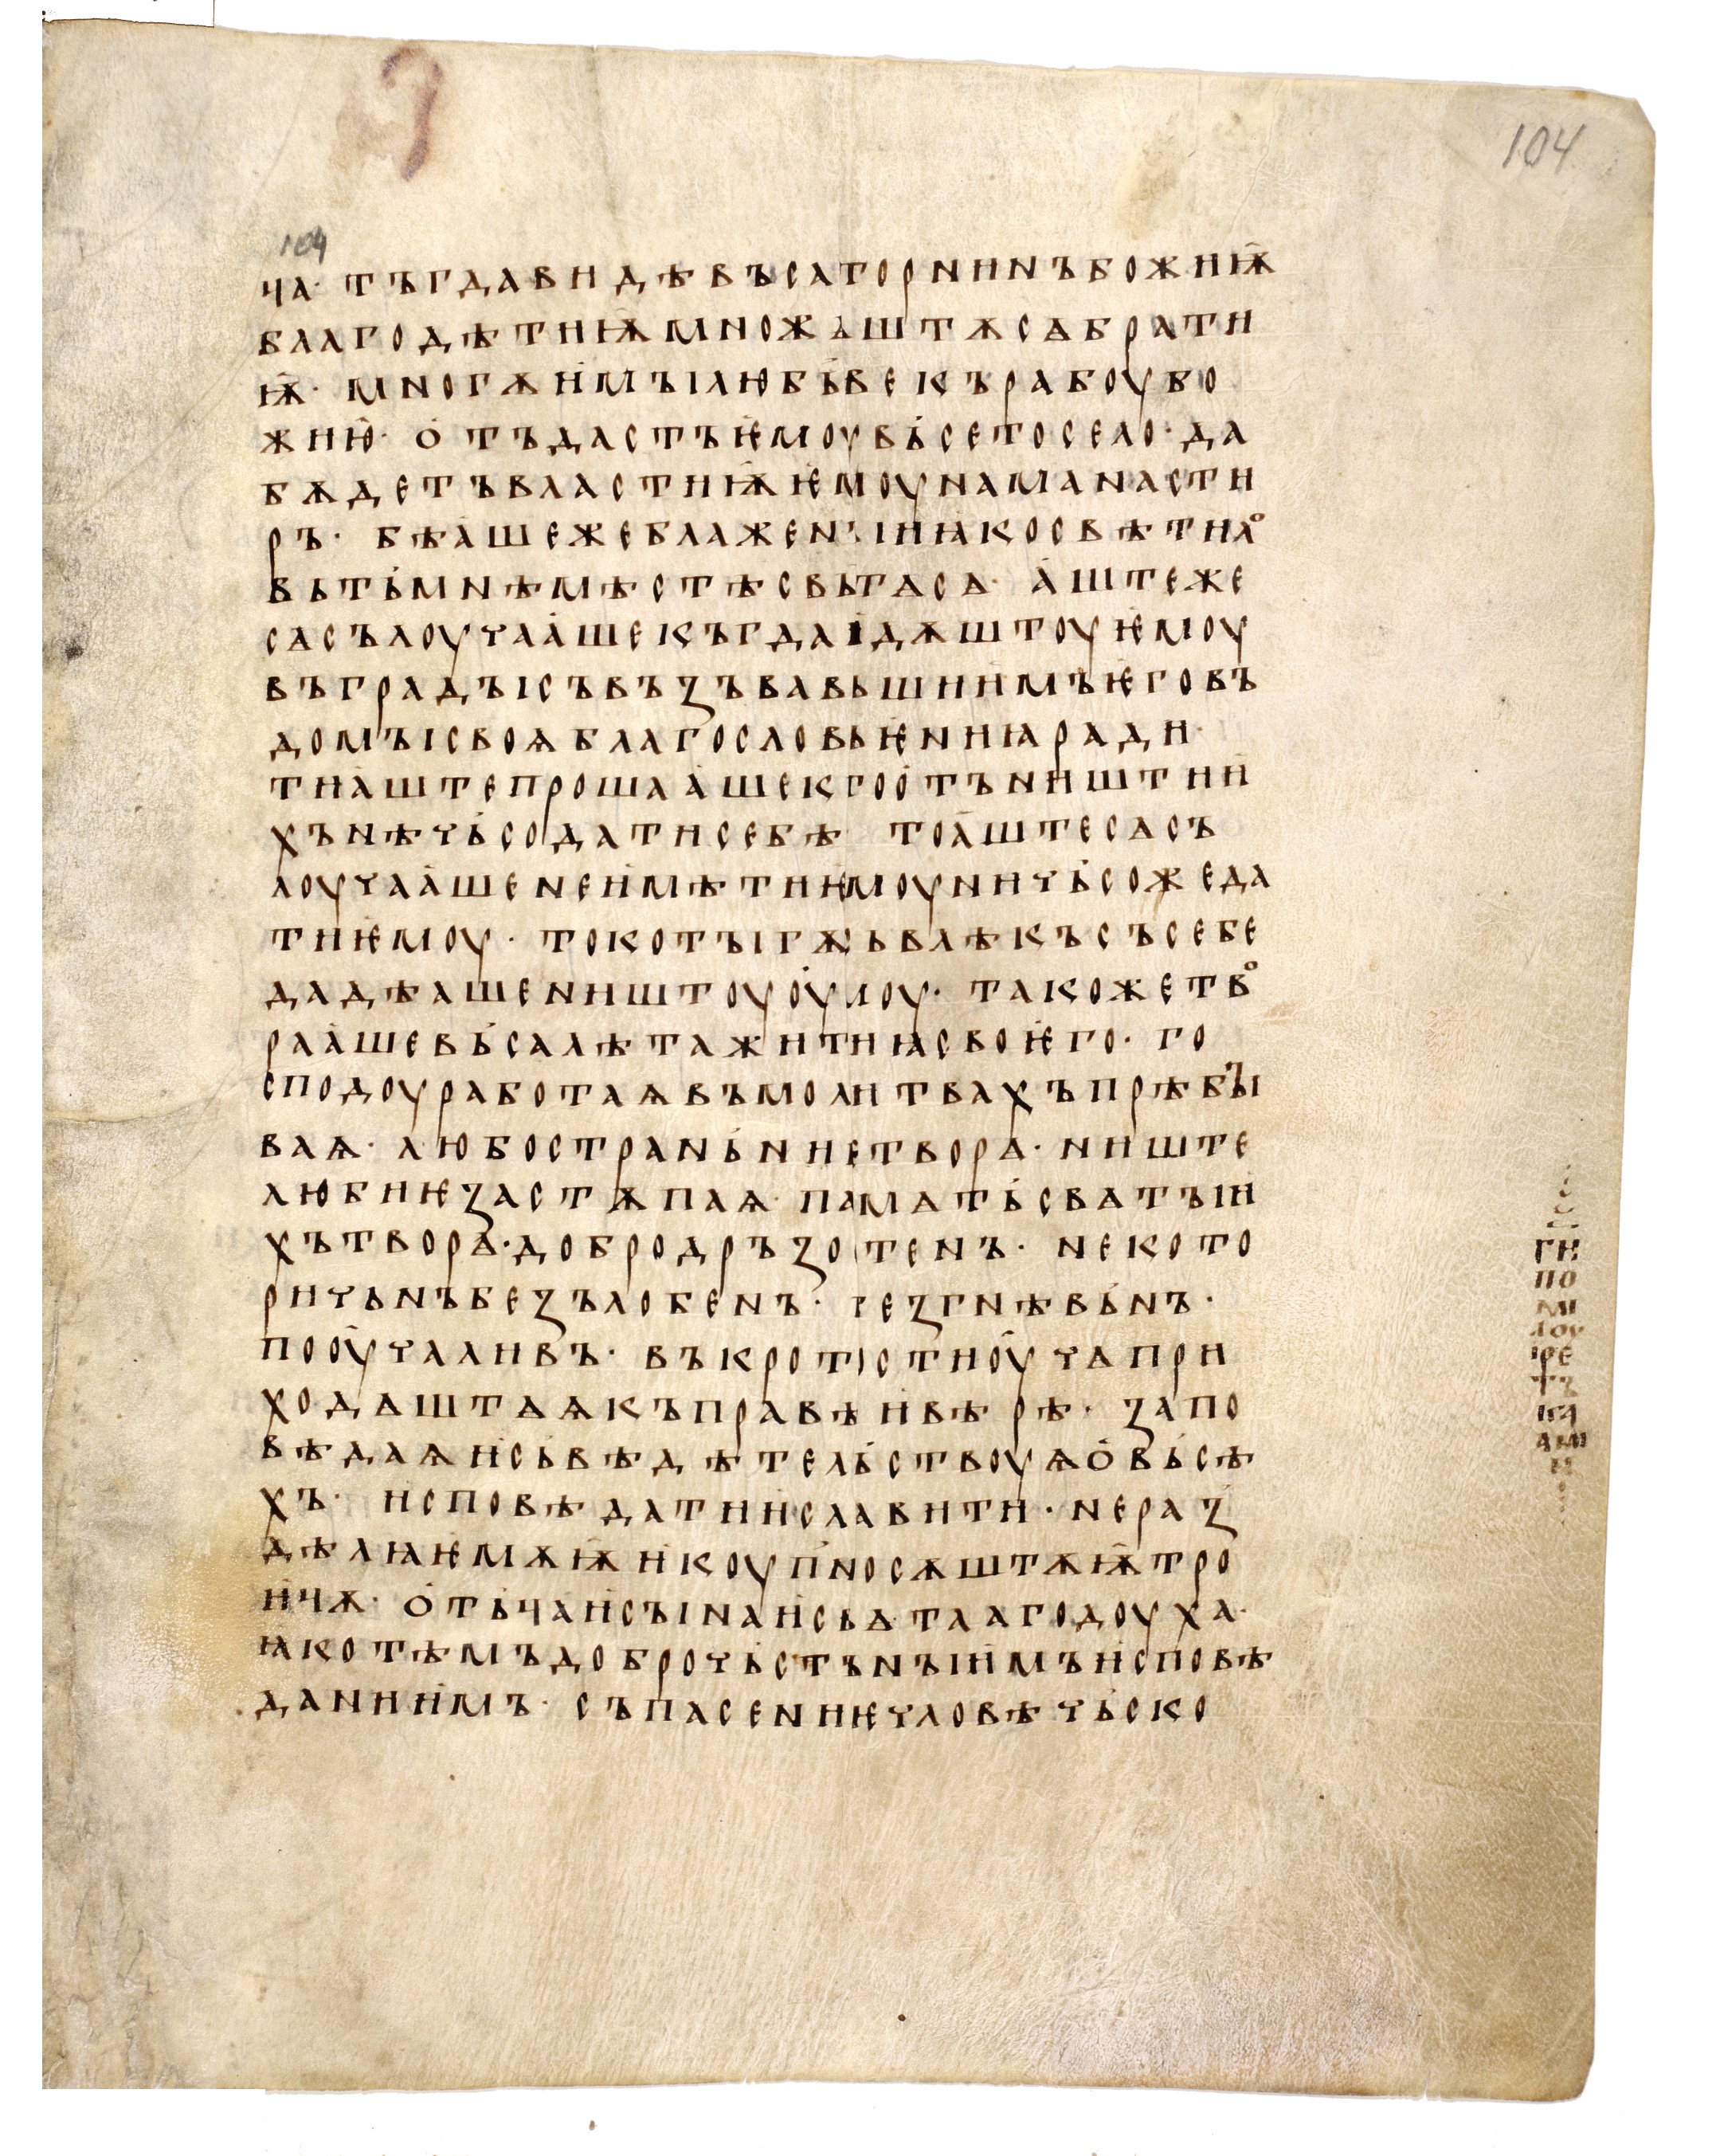 104
104
ча· тъгда видѣвъ саторнинъ божиѭ
благодѣтиѭ множѧштѫ сѧ брати
ѭ· многѫ имꙑ любъве къ рабоу бо
жию· отъдастъ ѥмоу вьсе то село· да
бѫдетъ властиѭ ѥмоу на манасти
ръ· бѣаше же блаженꙑи ꙗко свѣтило
вь тьмнѣ мѣстѣ свьтѧ сѧ· аште же
сѧ сълоучааше къгда идѫштоу ѥмоу
въ градꙑ съ възъвавьшиимъ ѥго въ
домꙑ своѩ благословьѥниꙗ ради·
ти аште прошааше кто отъ ништии
хъ нѣчьсо дати себѣ то аште сѧ съ
лоучааше не имѣти ѥмоу ничьсоже да
ти ѥмоу· то котꙑгѫ съвлѣкъ съ себе
дадѣаше ништоуоумоу· такоже тво
рѧаше вьсѧ лѣта житиꙗ своѥго· го
сподоу работаѩ въ молитвахъ прѣбꙑ
ваѩ· любостраньниѥ творѧ· ниште
любиѥ застѫпаѩ· памѧть свѧтꙑи
хъ творѧ· добродръзотенъ· некото
ричьнъ безълобенъ· безгнѣвьнъ·
пооучаливъ· въ кротости оучѧ при
ходѧштѧѩ къ правѣи вѣрѣ· запо
вѣдаѩ и съвѣдѣтельствоуѩ о вьсѣ
хъ· исповѣдати и славити· нераз
дѣлꙗѥмѫѭ и коупьносѫштѫѭ тро
ицѫ· отьца и сꙑна и свѧтаго доуха·
ꙗко тѣмъ доброчьстьнꙑимъ исповѣ
даниимъ· съпасениѥ чловѣчьско
ги
по
ми
лоу